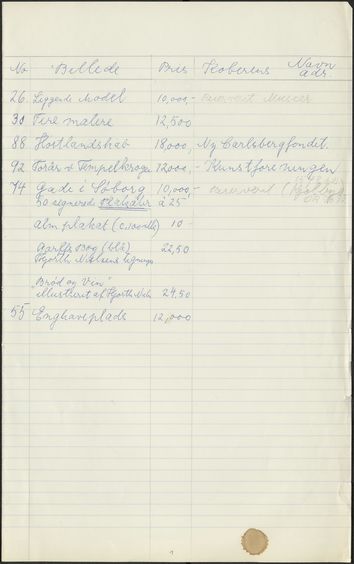 No Billede Pris Køberens Navn
adr.
26. Liggende Model 10,000,- reserveret
30 Fire malere 12,500
88 Høstlandskab 18,000, Ny Carlsbergfondet.
92 Forår v Tempelkrogen 12000,- Kunstforeningen
74 Gade i Søborg 10,000,- reserveret
50 signerede plakater à 25
alm plakat (c. 100 stk) 10 -
Bog (blå) 22,50
Hjorth Nielsens
"Brød og Vin"
illustreret af Hjorth Niels. 24.50
55 Enghaveplads 12,000